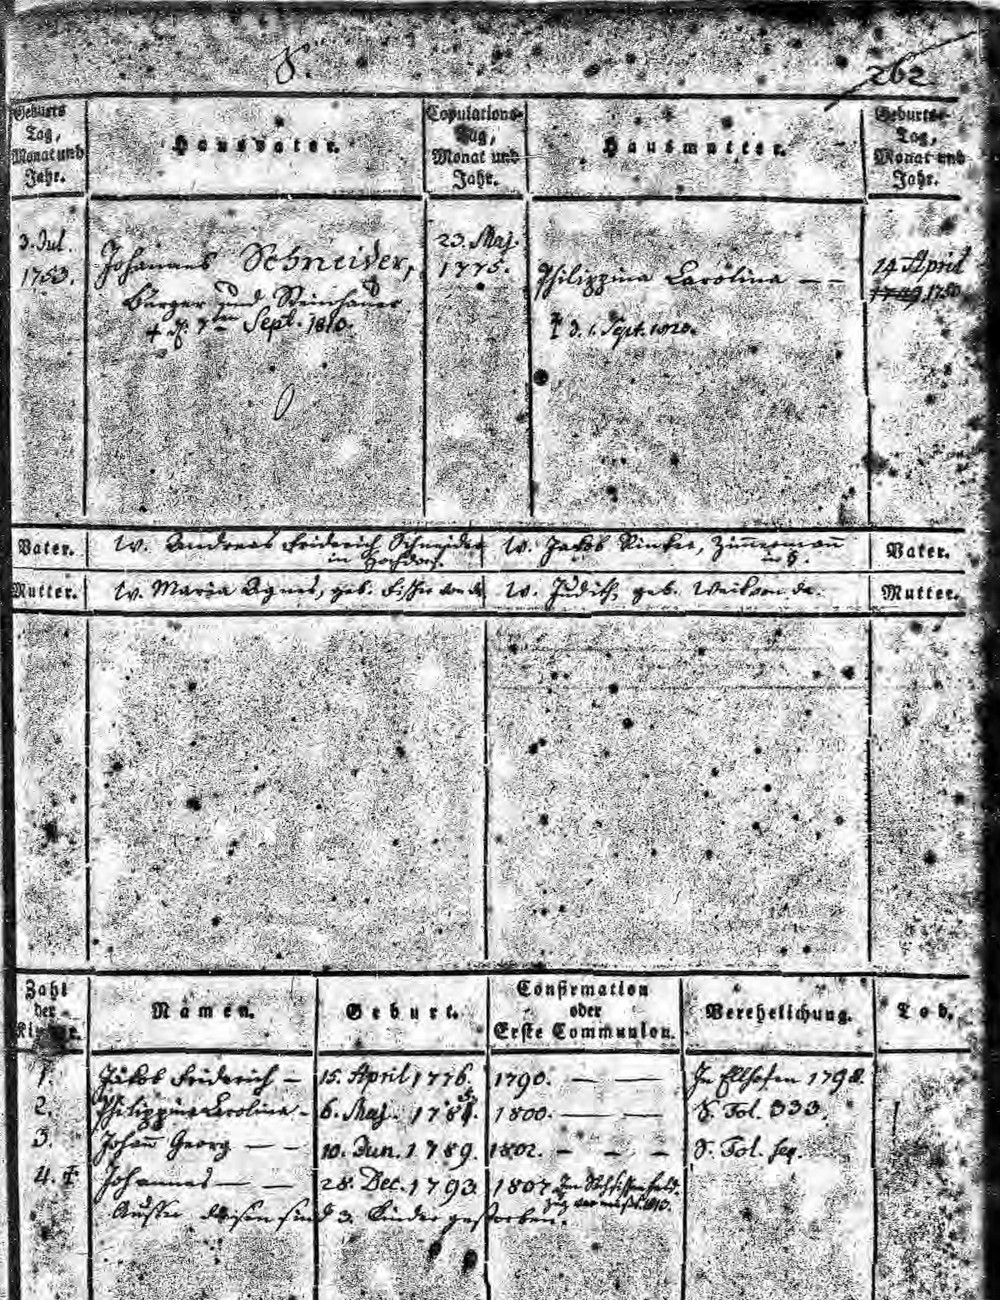 S.
262
Geburts Tag, Monat und Jahr.
Hausvater.
Copulations- Tag, Monat und Jahr.
Hausmutter.
Geburts- Tag, Monat und Jahr.
3. Jul. 1753.
Johannes Schneider,
Bürger und Steinhauer
† d. 7ten Sept. 1810.
23. Maj. 1775.
Philippina Carolina — —
† d. 1. Sept. 1820.
14 April
1749. 1750
Vater.
W. Andreas Friderich Schneider
in Hochdorf.
W. Jakob Rinker, Zimmermann
in S.
Vater.
Mutter.
W. Maria Agnes, geb. Fischer von da
W. Judith, geb. von da.
Mutter.
Zahl der Kinder.
Namen.
Geburt.
Confirmation oder Erste Communion.
Verehelichung.
Tod.
1. Jakob Friderich — 15. April 1776. 1790. — — In Ellhofen 1798.
2. Philippina Carolina - 6. Maj. 1786. 1800. — — S. Fol. 333.
3. Johann Georg — — 10. Jun. 1789. 1802. - - - S. Fol. seq.
4. † Johannes — — 28. Dec. 1793. 1807.
Ausser diesen sind 3. Kinder gestorben.